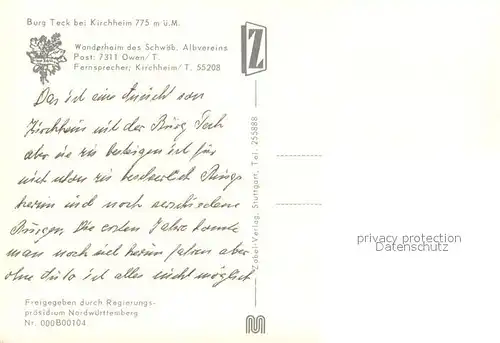 Burg Teck bei Kirchheim 775 m ü.M.
Wanderheim des Schwäb. Albvereins
Post: 7311 Owen/T.
Fernsprecher: Kirchheim/T. 55208
Das ist eine Ansicht von
Kirchheim mit der Burg Teck
aber sie zu besteigen ist für
mich schon zu beschwerlich Rings
herum sind noch verschiedene
Burgen. Die ersten Jahre konnte
man noch viel herum fahren aber
ohne Auto ist alles nicht möglich
Freigegeben durch Regierungs-
präsidium Nordwürttemberg
Nr. 000B00104
Z
Zobel-Verlag, Stuttgart, Tel. 255888
privacy protection
Datenschutz